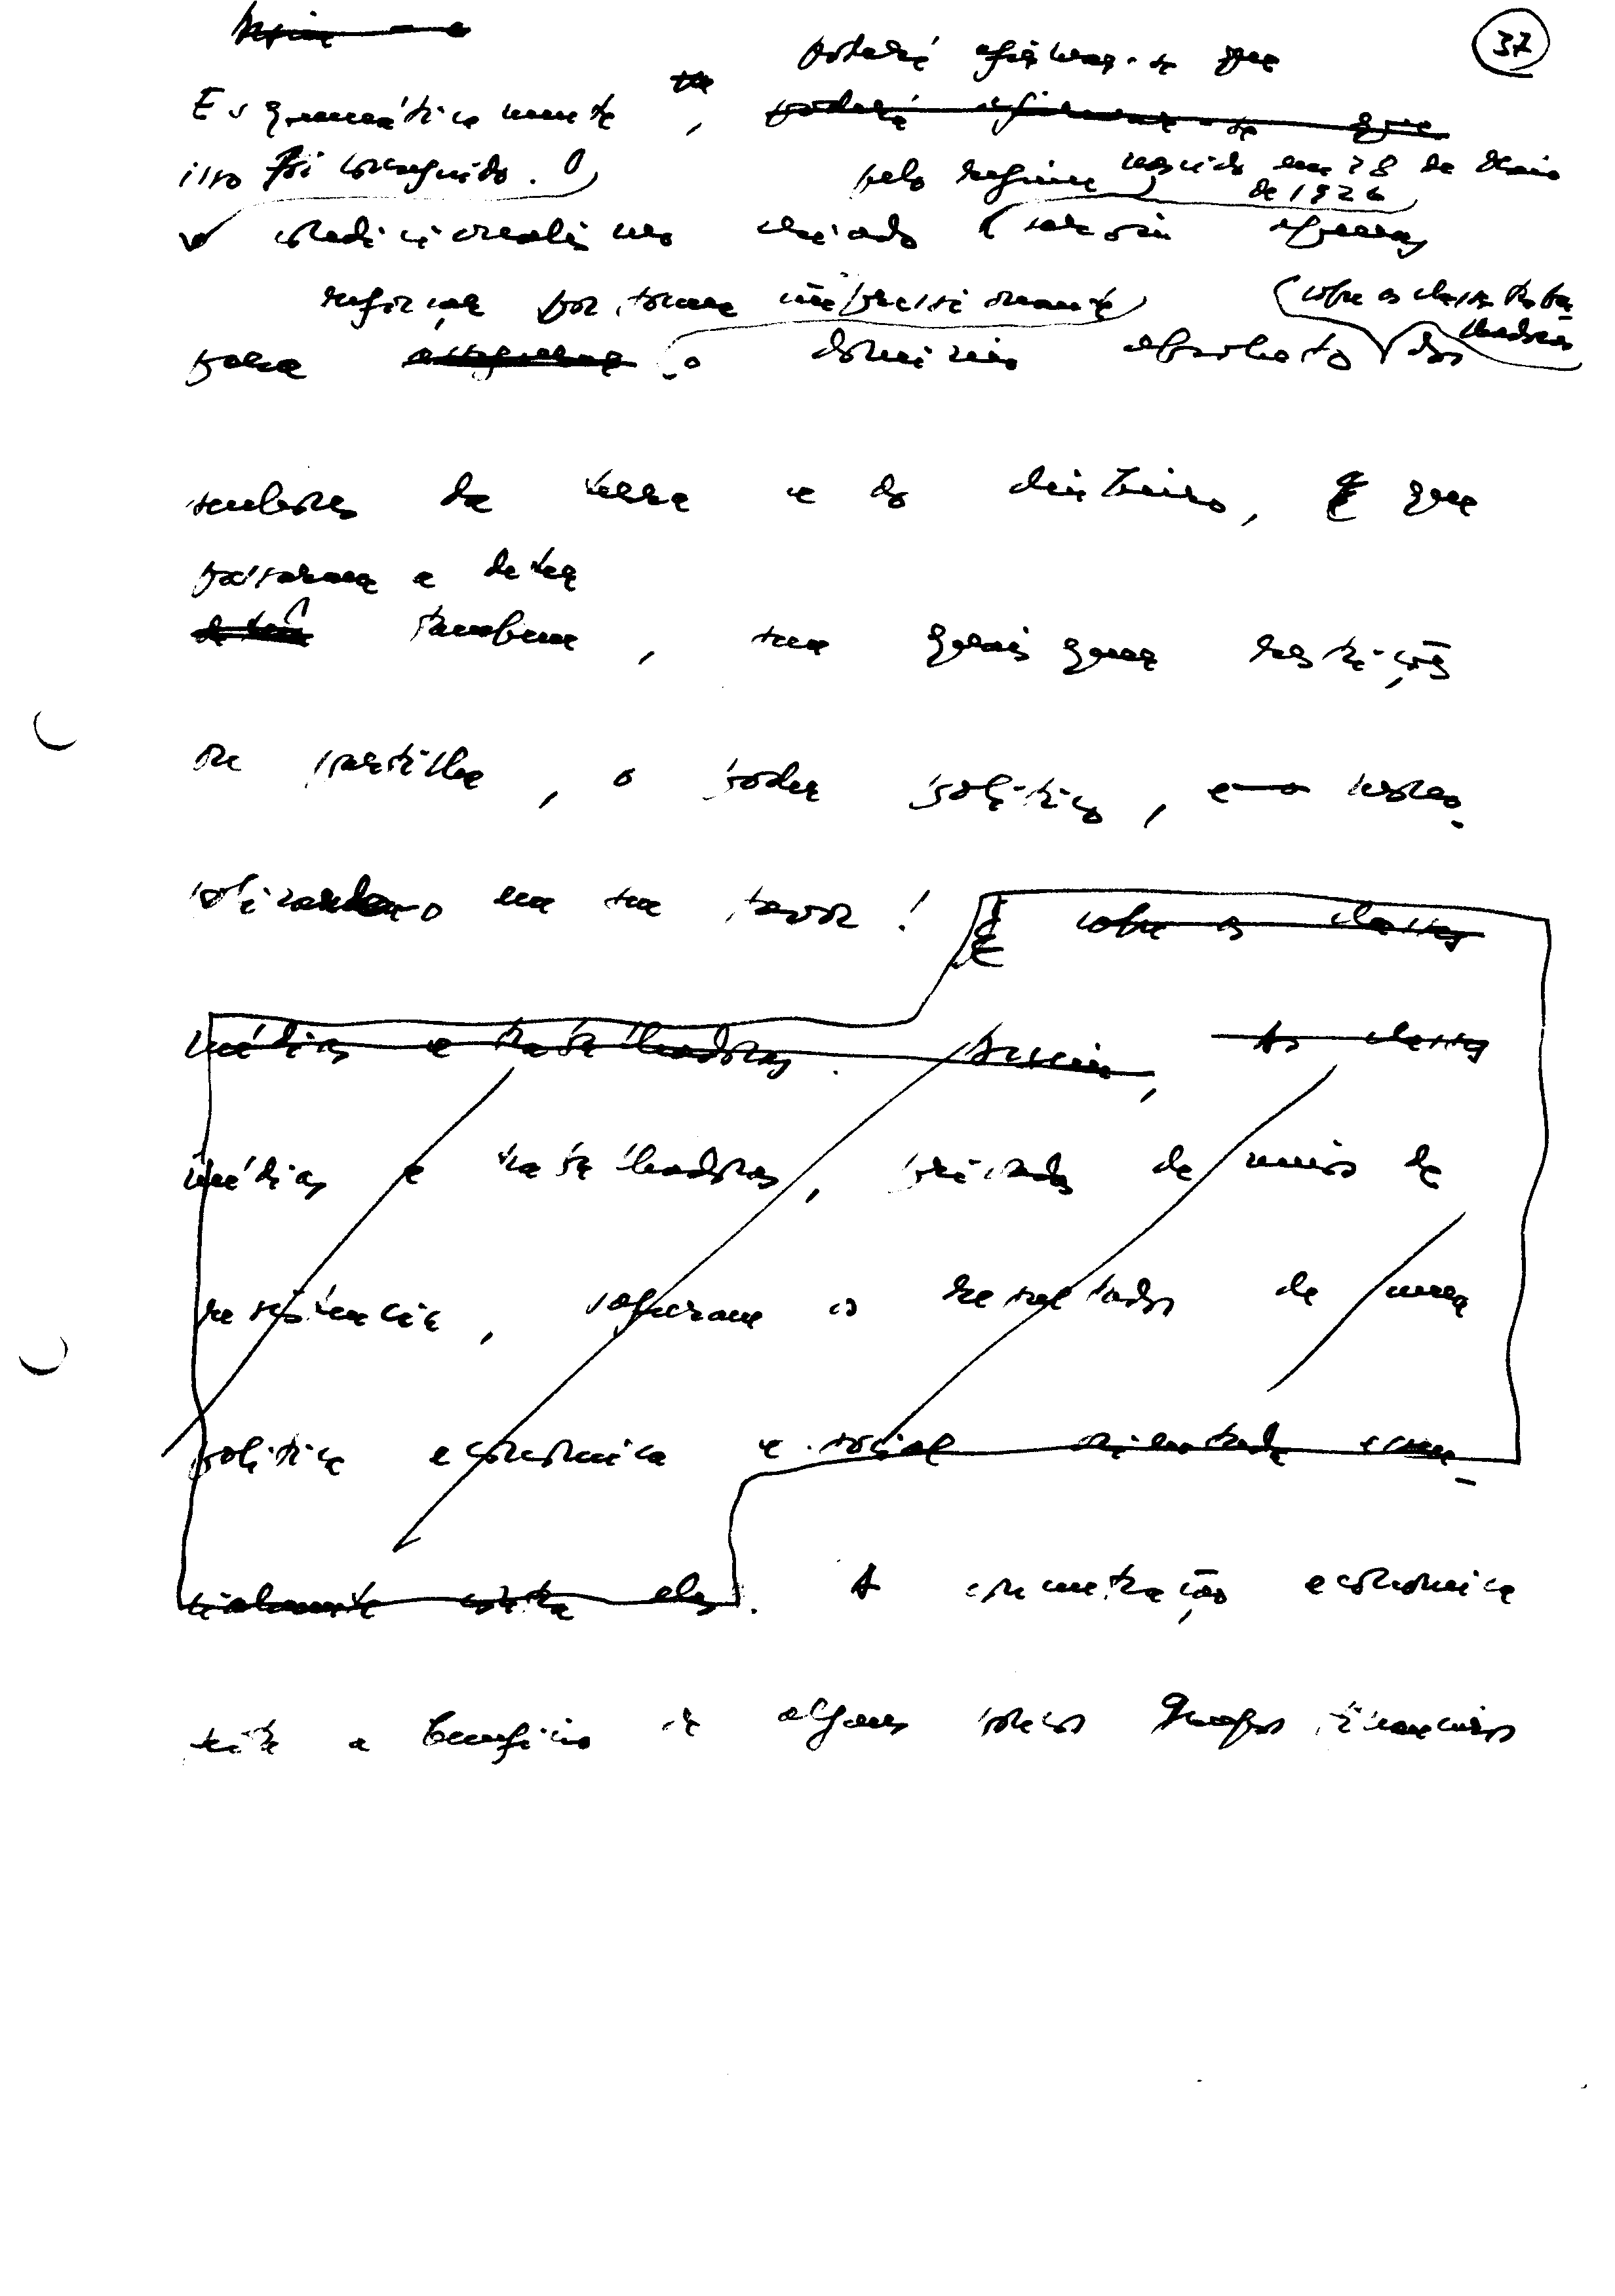 37
poderá afirmar-se que
Esquemáticamente, poderá afirmar-se que
isso foi conseguido. O pelo regime nascido em 28 de Maio
de 1926
condicionalismo criado serviu apenas
reforçar por forma impressionante sobre as classes traba
lhadoras
para assegurar o domínio absoluto dos
senhores da terra e do dinheiro, e que
passaram a deter
detêm tambem, sem quaisquer restrições
ou partilha, o poder político, e o
em seu favor! E sobre as classes
médias e trabalhadoras. Assim, As classes
médias e trabalhadoras, privadas de meios de
resistência, sofreram os resultados de uma
política económica e social orientada essen-
cialmente contra elas. A concentração económica
feita a benefício de alguns poucos grupos financeiros